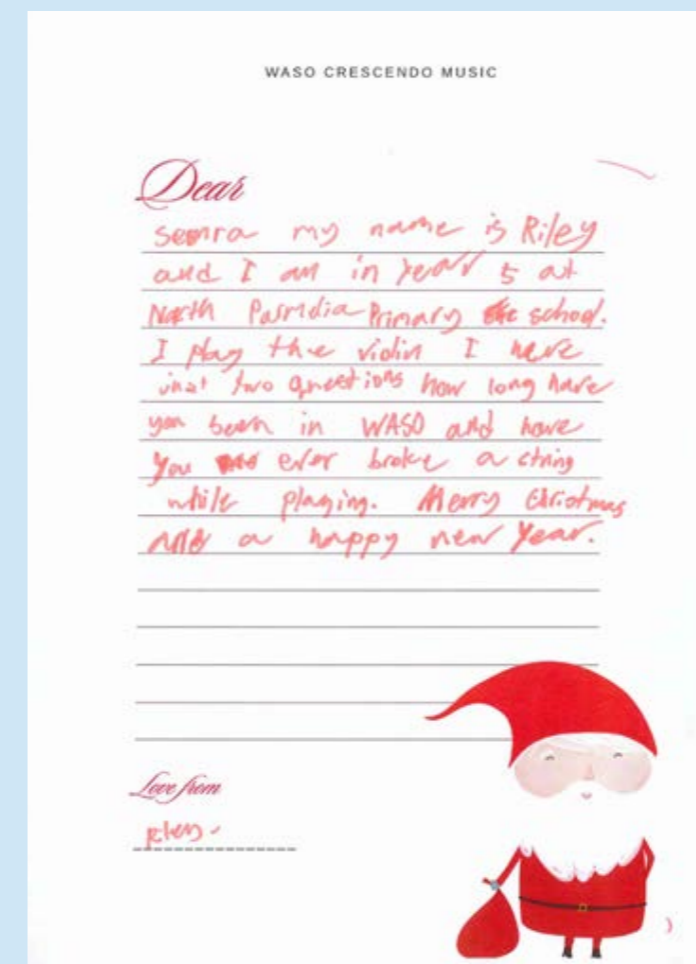 WASO CRESCENDO MUSIC
Dear
Semra my name is Riley
and I am in year 5 at
North Parmelia Primary school.
I play the violin I have
just two questions how long have
you been in WASO and have
you ever broke a string
while playing. Merry Christmas
and a happy new year.
Love from
Riley